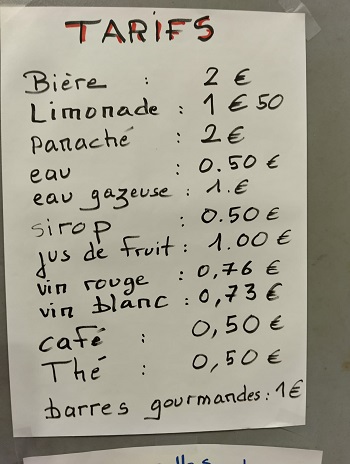 TARIFS
Bière : 2 €
Limonade : 1 € 50
panaché : 2 €
eau : 0.50 €
eau gazeuse : 1.€
sirop : 0.50 €
jus de fruit : 1.00 €
vin rouge : 0,76 €
vin blanc : 0,73 €
café : 0,50 €
Thé : 0,50 €
barres gourmandes : 1€